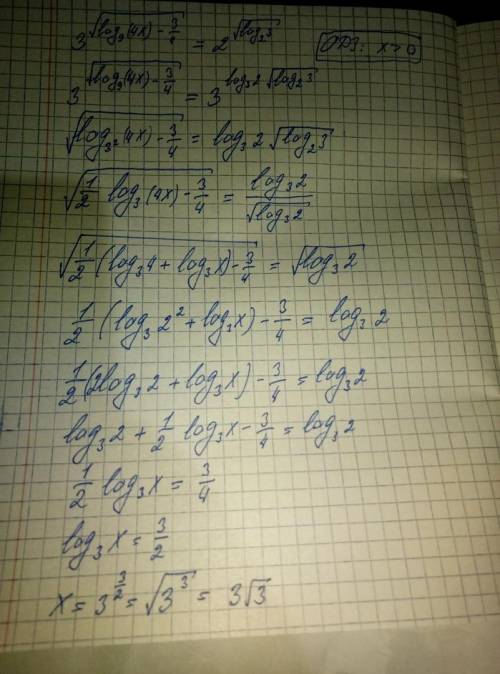 3^{√(log₉(4x) - 3/4)} = 2^{√(log₂3)} ОДЗ: x > 0
3^{√(log₉(4x) - 3/4)} = 3^{log₃2 √(log₂3)}
√(log_{3²}(4x) - 3/4) = log₃2 √(log₂3)
√(1/2 log₃(4x) - 3/4) = log₃2 / √(log₃2)
√(1/2 (log₃4 + log₃x) - 3/4) = √(log₃2)
1/2 (log₃2² + log₃x) - 3/4 = log₃2
1/2 (2log₃2 + log₃x) - 3/4 = log₃2
log₃2 + 1/2 log₃x - 3/4 = log₃2
1/2 log₃x = 3/4
log₃x = 3/2
x = 3^{3/2} = √(3³) = 3√3